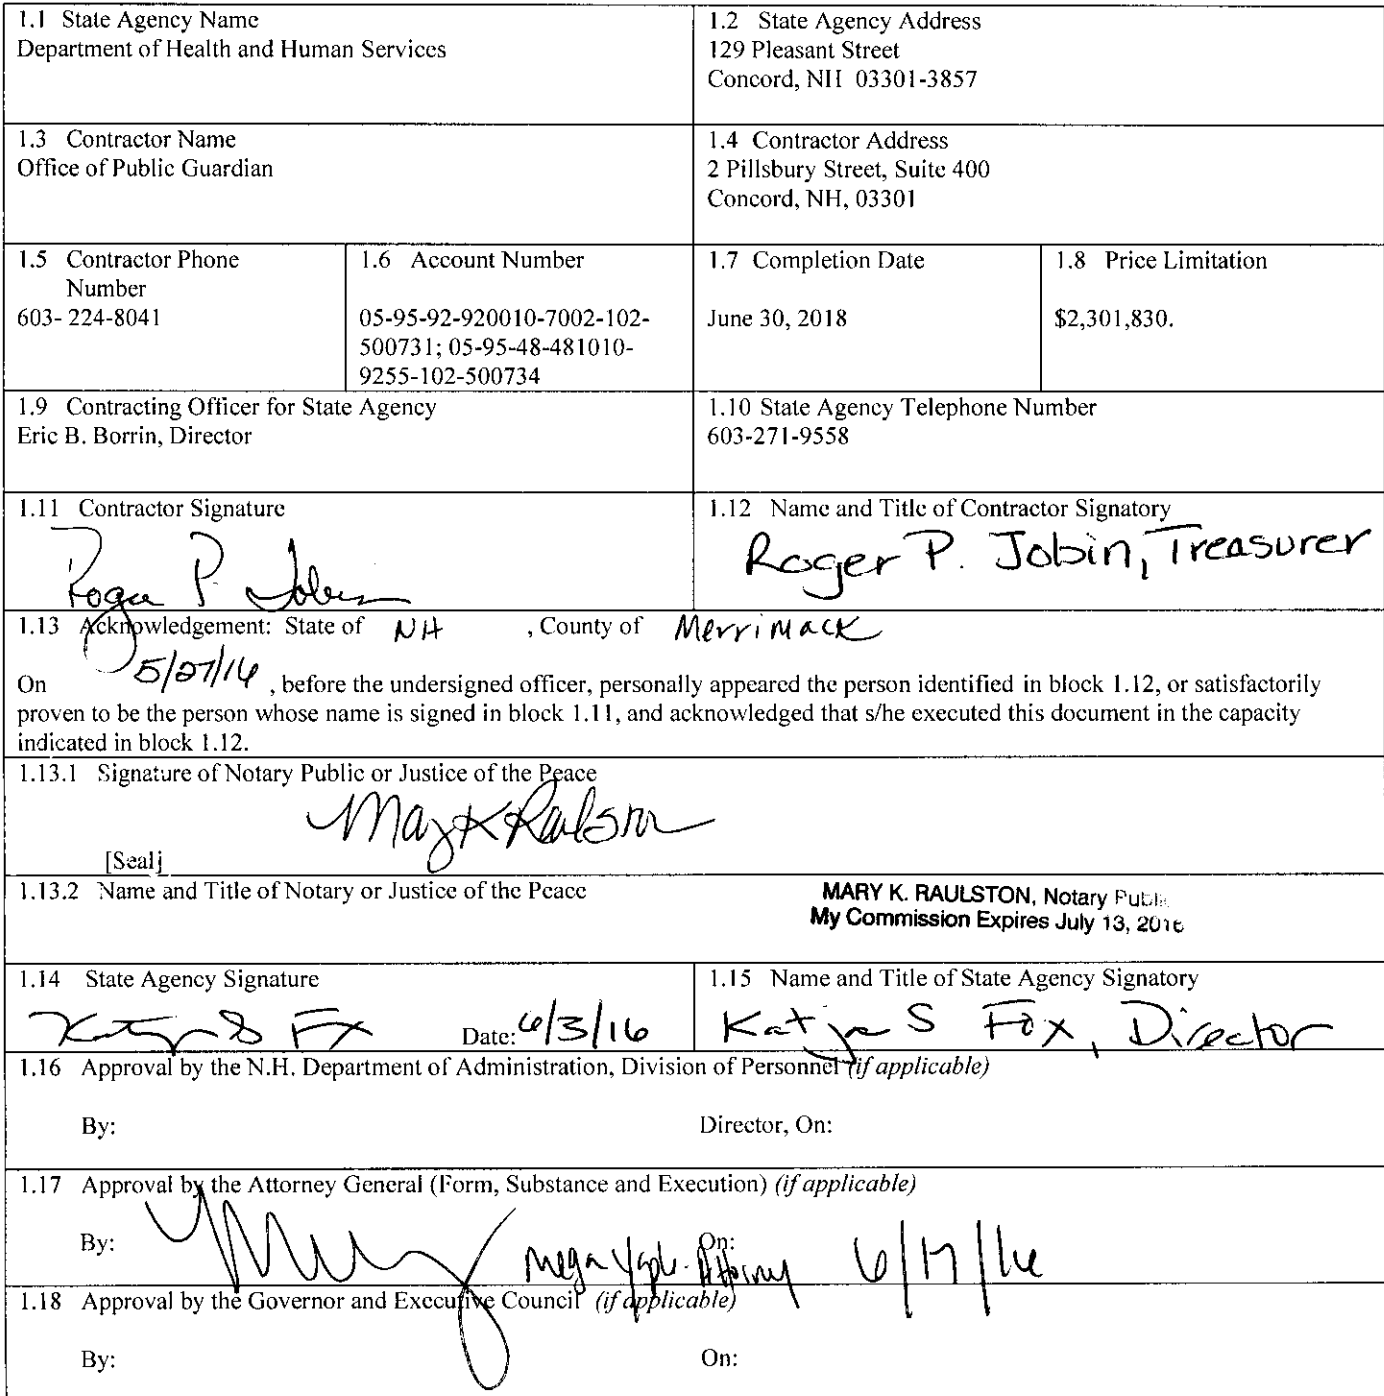 1.1 State Agency Name
Department of Health and Human Services
1.2 State Agency Address
129 Pleasant Street
Concord, NH 03301-3857
1.3 Contractor Name
Office of Public Guardian
1.4 Contractor Address
2 Pillsbury Street, Suite 400
Concord, NH, 03301
1.5 Contractor Phone
Number
603- 224-8041
1.6 Account Number
05-95-92-920010-7002-102-
500731; 05-95-48-481010-
9255-102-500734
1.7 Completion Date
June 30, 2018
1.8 Price Limitation
$2,301,830.
1.9 Contracting Officer for State Agency
Eric B. Borrin, Director
1.10 State Agency Telephone Number
603-271-9558
1.11 Contractor Signature
Roger P. Jobin
1.12 Name and Title of Contractor Signatory
Roger P. Jobin, Treasurer
1.13 Acknowledgement: State of NH , County of Merrimack
On 5/27/16 , before the undersigned officer, personally appeared the person identified in block 1.12, or satisfactorily
proven to be the person whose name is signed in block 1.11, and acknowledged that s/he executed this document in the capacity
indicated in block 1.12.
1.13.1 Signature of Notary Public or Justice of the Peace
Mary K Raulston
[Seal]
1.13.2 Name and Title of Notary or Justice of the Peace
MARY K. RAULSTON, Notary Public
My Commission Expires July 13, 2016
1.14 State Agency Signature
Katja S Fox Date: 6/3/16
1.15 Name and Title of State Agency Signatory
Katja S Fox, Director
1.16 Approval by the N.H. Department of Administration, Division of Personnel (if applicable)
By: Director, On:
1.17 Approval by the Attorney General (Form, Substance and Execution) (if applicable)
By: Attorney On: 6/17/16
1.18 Approval by the Governor and Executive Council (if applicable)
By: On: